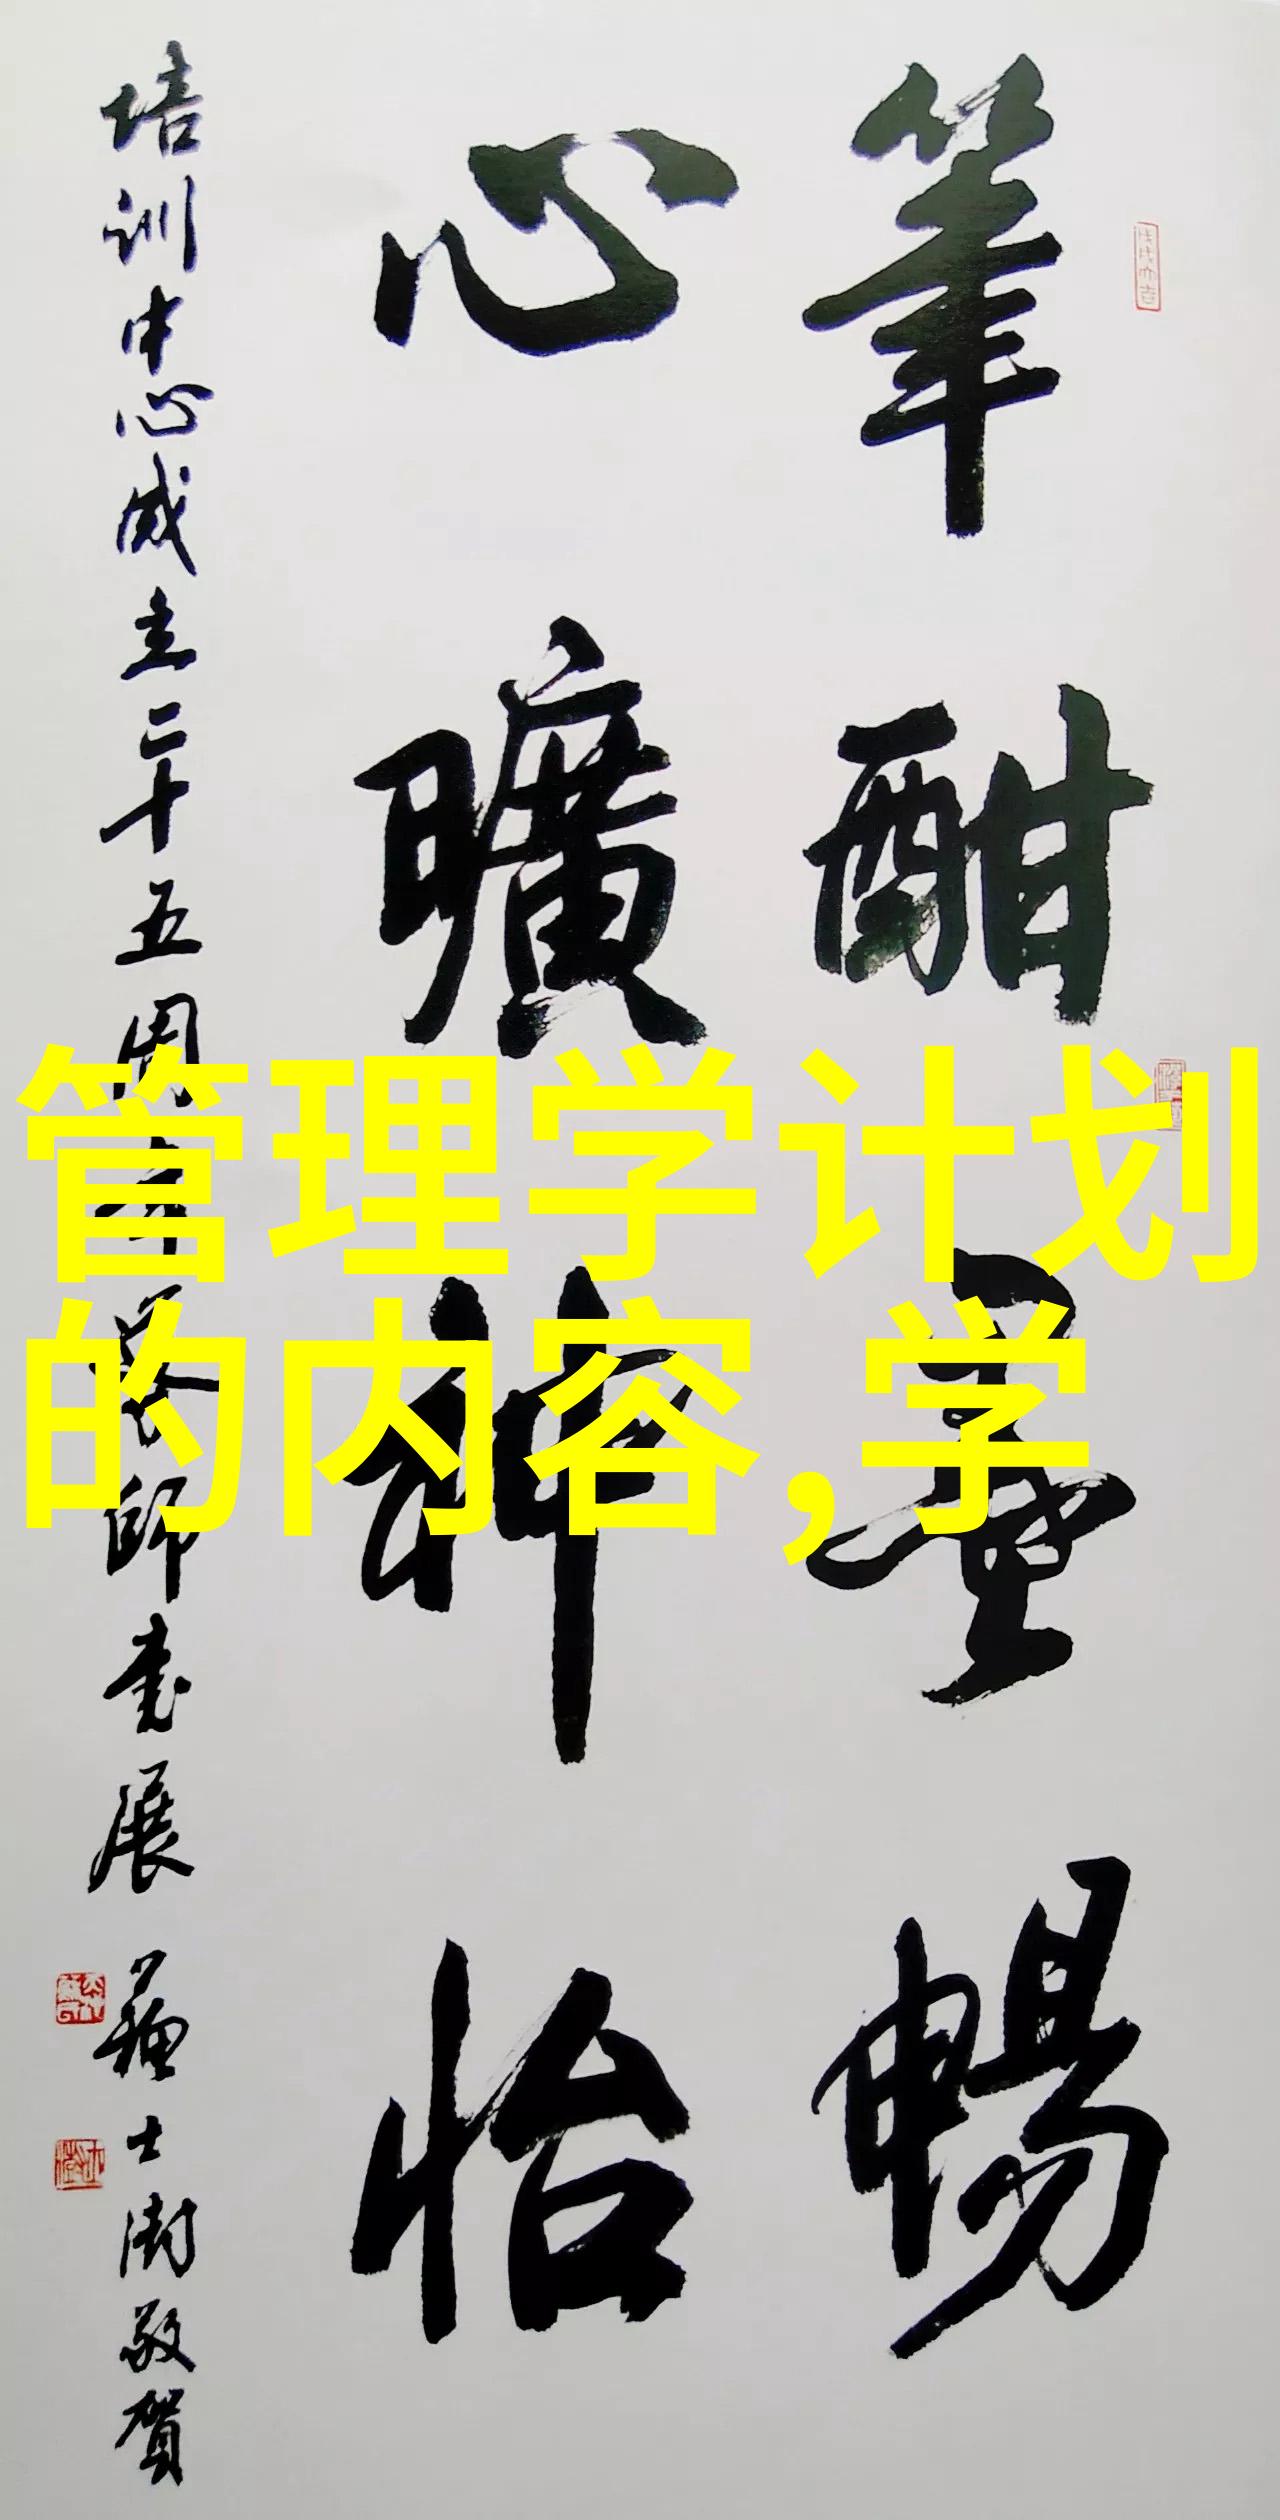 筆酣墨暢
心曠神怡
培训中心成立二十五周年老师书展
士澍敬賀
管理学计划
的内容,学